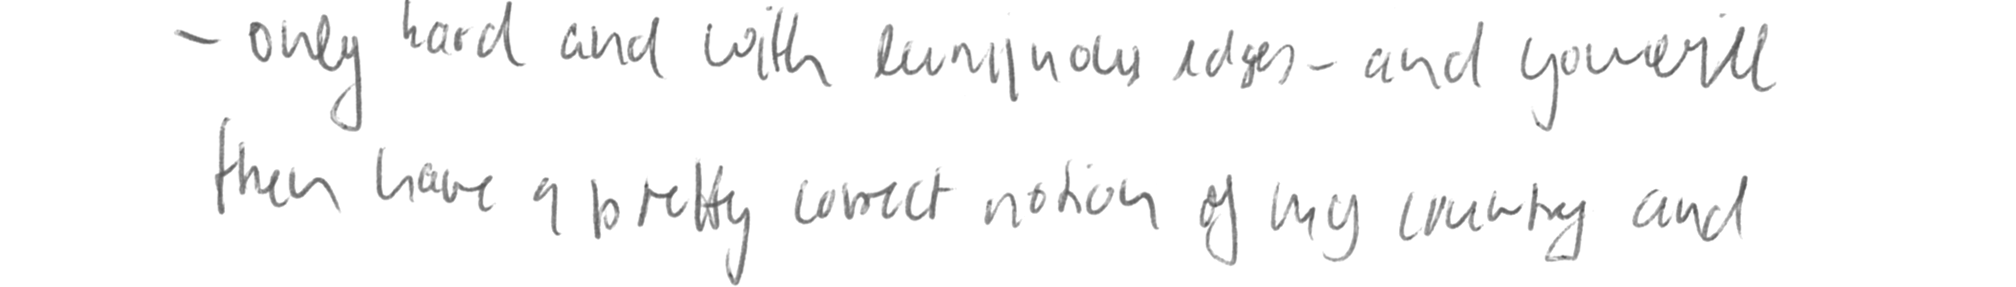 - only hard and with luminous edges - and you will
then have a pretty correct notion of my country and